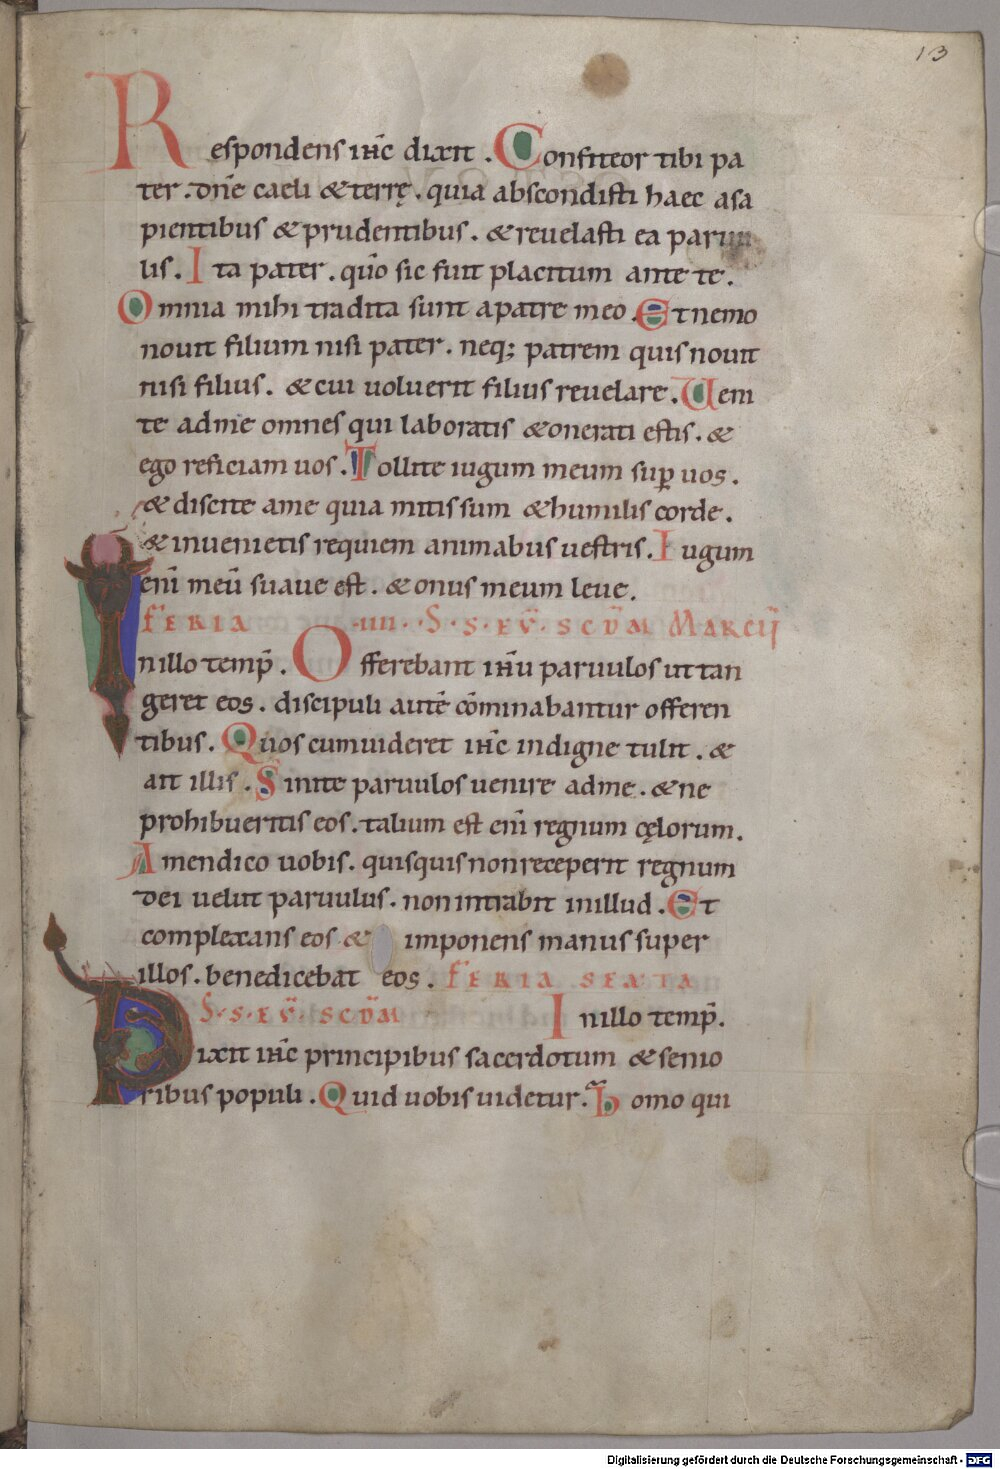 13
Respondens ihc̄ dixit . Confiteor tibi pa
ter . dn̄e caeli & terrę . quia abscondisti haec asa
pientibus & prudentibus . & reuelasti ea paruu
lis . Ita pater . qūo sic fuit placitum ante te .
Omnia mihi tradita sunt apatre meo . Et nemo
nouit filium nisi pater . neq; patrem quis nouit
nisi filius . & cui uoluerit filius reuelare . Ueni
te adme omnes qui laboratis & onerati estis . &
ego reficiam uos . Tollite iugum meum sup̄ uos .
& discite ame quia mitis sum & humilis corde .
& inuenietis requiem animabus uestris . Iugum
enī meū suaue est . & onus meum leue .
FERIA .IIII. S. S. EV̄. SCD̄M MARCU̅
Inillo temp̄ . Offerebant ihū paruulos ut tan
geret eos . discipuli autē cōminabantur offeren
tibus . Quos cumuideret ihc̄ indigne tulit . &
ait illis . Sinite paruulos uenire adme . & ne
prohibueritis eos . talium est enī regnum cęlorum .
Amendico uobis . quisquis non receperit regnum
dei uelut paruulus . non intrabit inillud . Et
complexans eos & imponens manus super
illos . benedicebat eos . FERIA SEXTA
S. S. EV̄. SCD̄M Inillo temp̄ .
Dixit ihc̄ principibus sacerdotum & senio
ribus populi . Quid uobis uidetur . homo qui
Digitalisierung gefördert durch die Deutsche Forschungsgemeinschaft - DFG